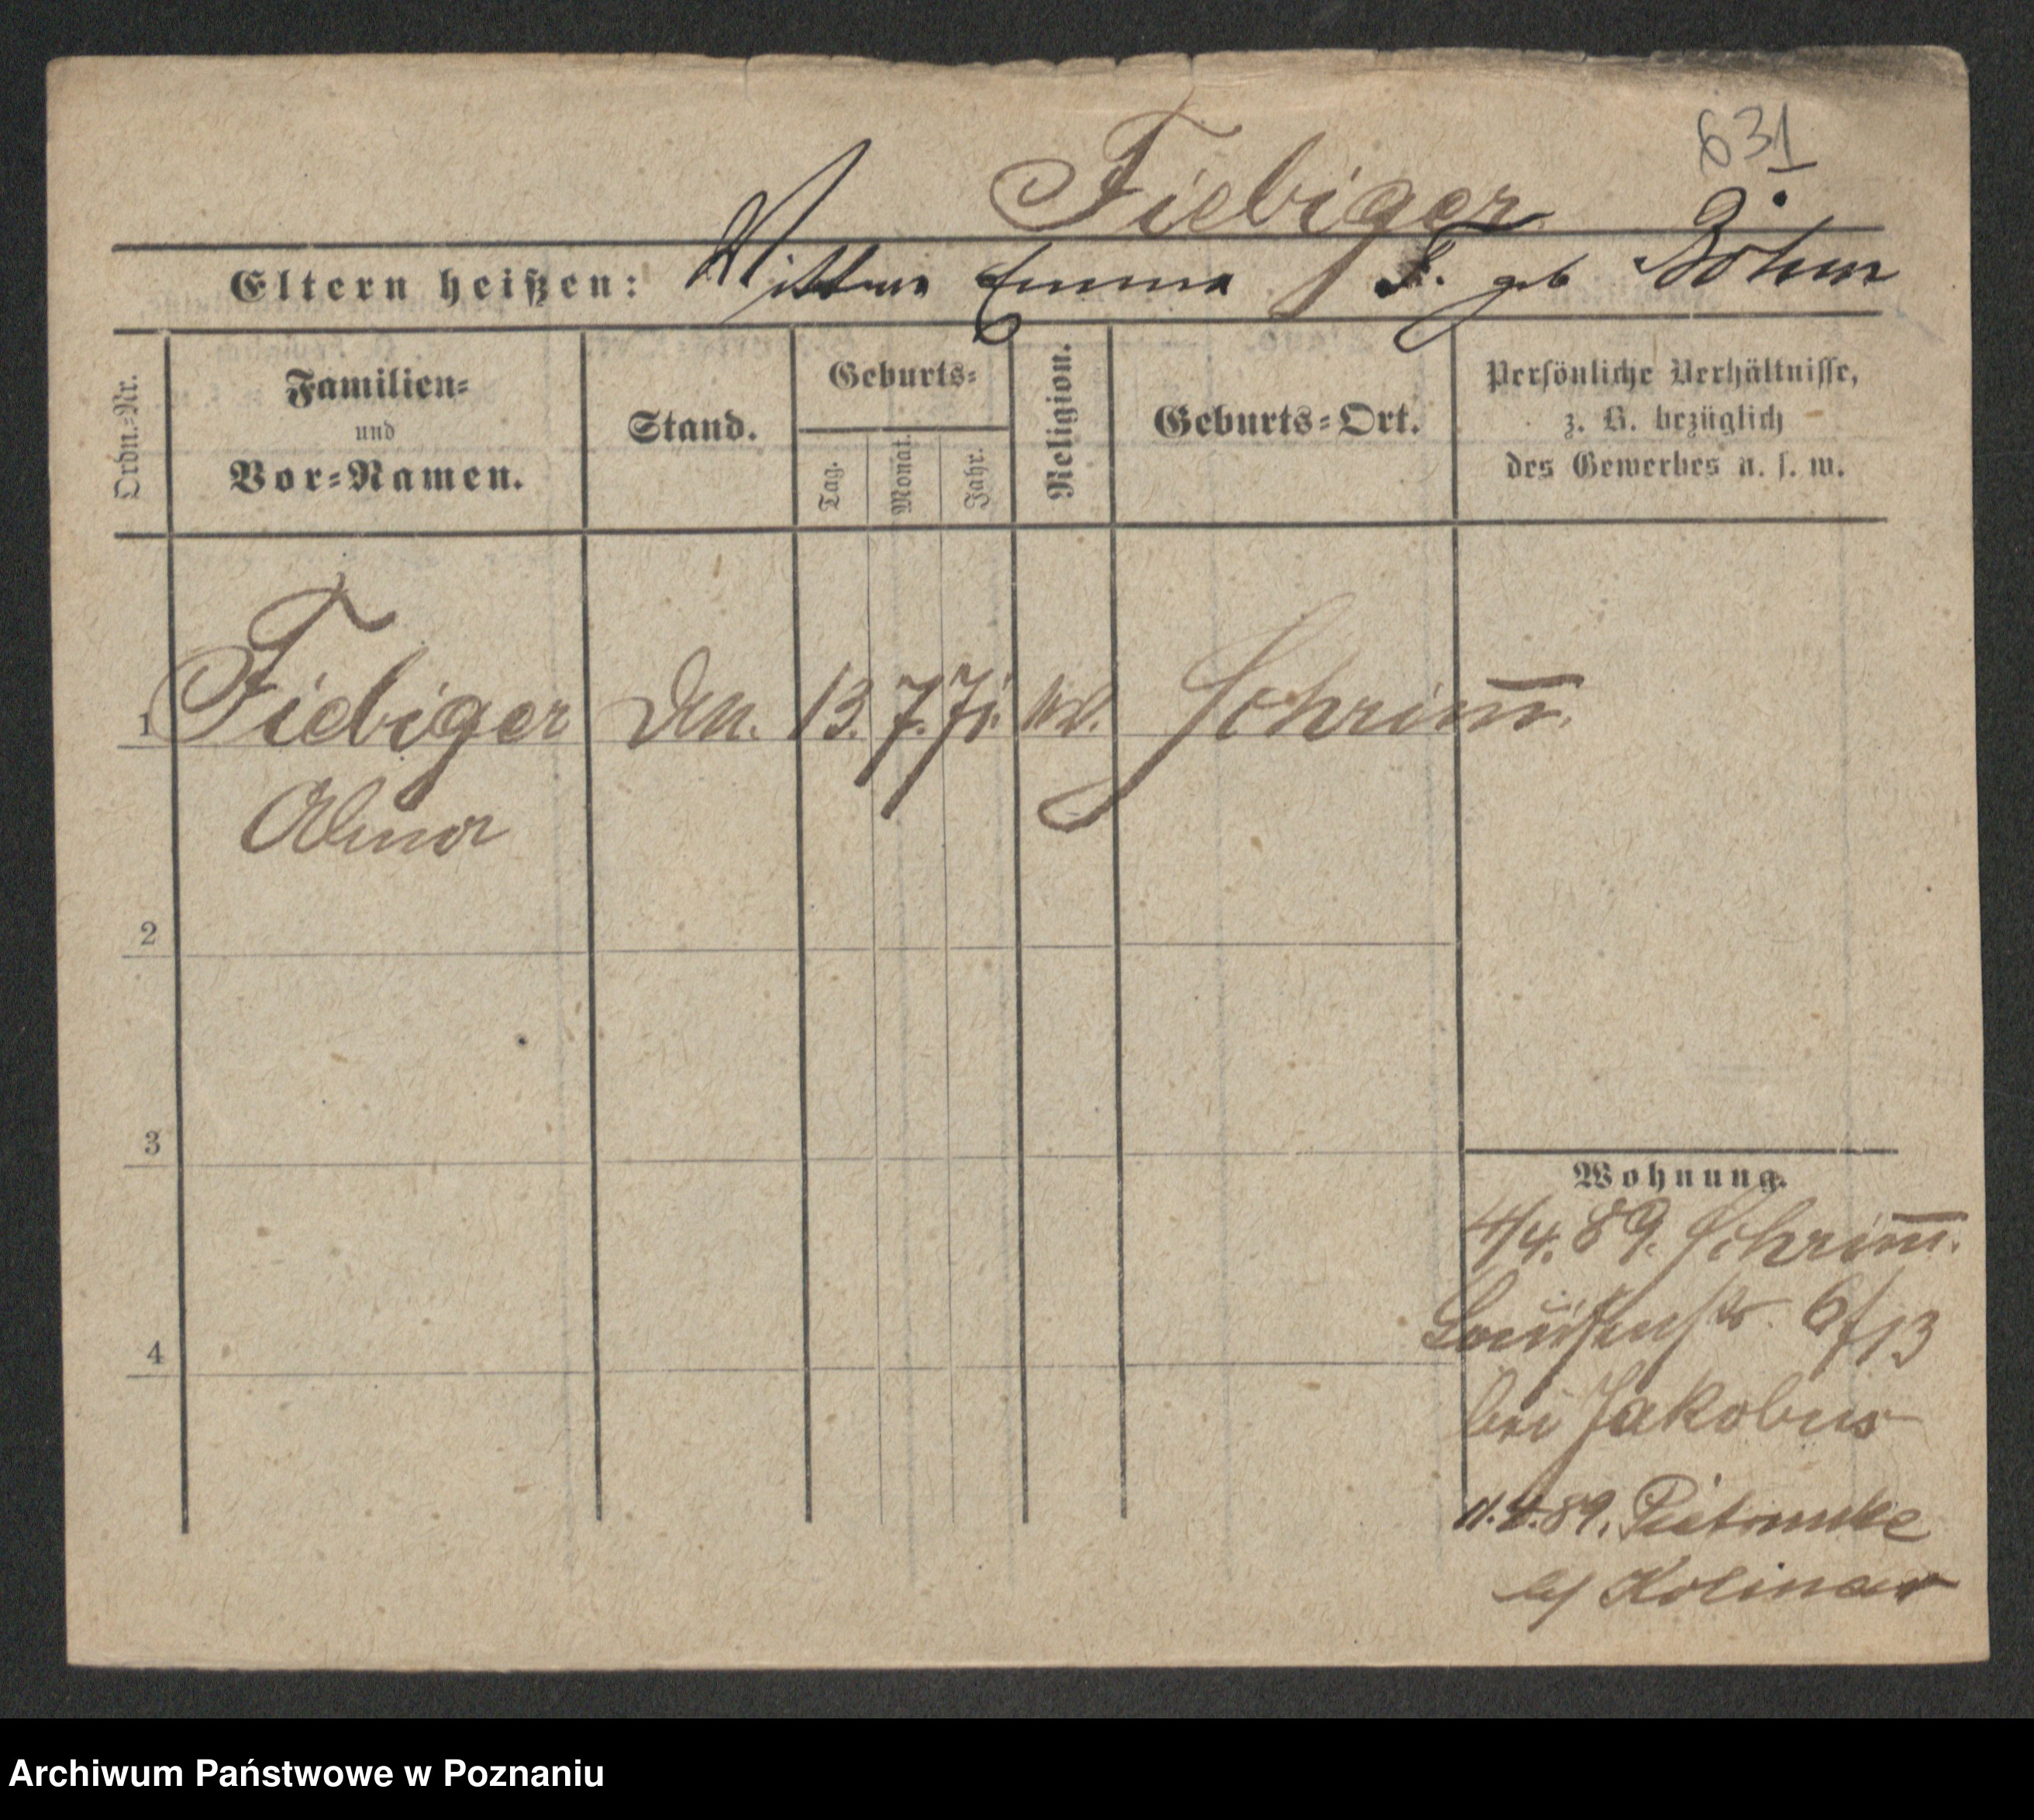 631
Fiebiger
Eltern heißen: Wittwe Emma F. geb Böhm
Ordn.-Nr.
Familien-
und
Vor-Namen.
Stand.
Geburts-
Tag.
Monat.
Jahr.
Religion.
Geburts-Ort.
Persönliche Verhältnisse,
z. B. bezüglich
des Gewerbes u. s. w.
1 Fiebiger 13. 7. 71. Schrim̅.
2
3
4
Wohnung.
4/4. 89. Schrim̅.
Louisenstr. 6/13
bei Jakobus
11.4.89.
bei
Archiwum Państwowe w Poznaniu